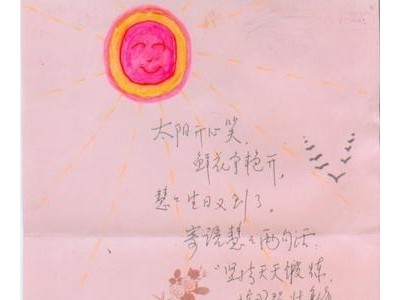 太阳开心笑，
鲜花争艳开，
慧慧生日又到了。
寄语慧慧两句话：
"坚持天天锻炼，